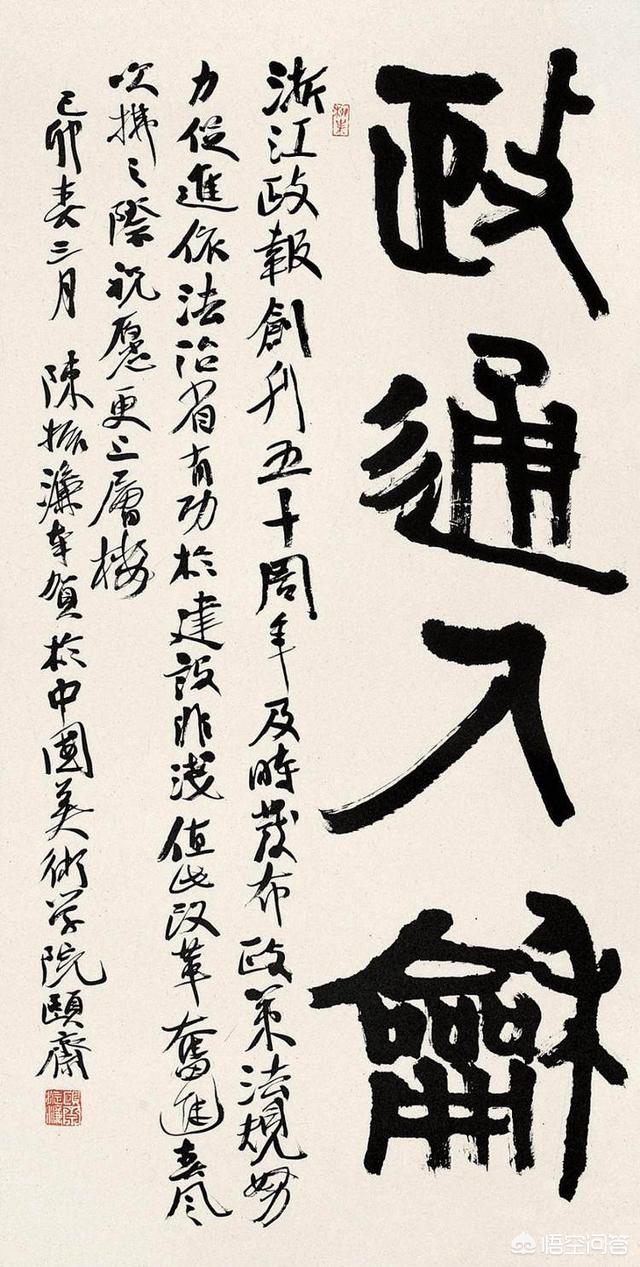 政通人龢
浙江政報創刊五十周年及時發布政策法規努
力促進依法治省有功於建設非淺值此改革奮進春風
吹拂之際祝愿更上層樓
己卯春三月 陳振濂奉贺於中國美術学院頤齋
悟空问答